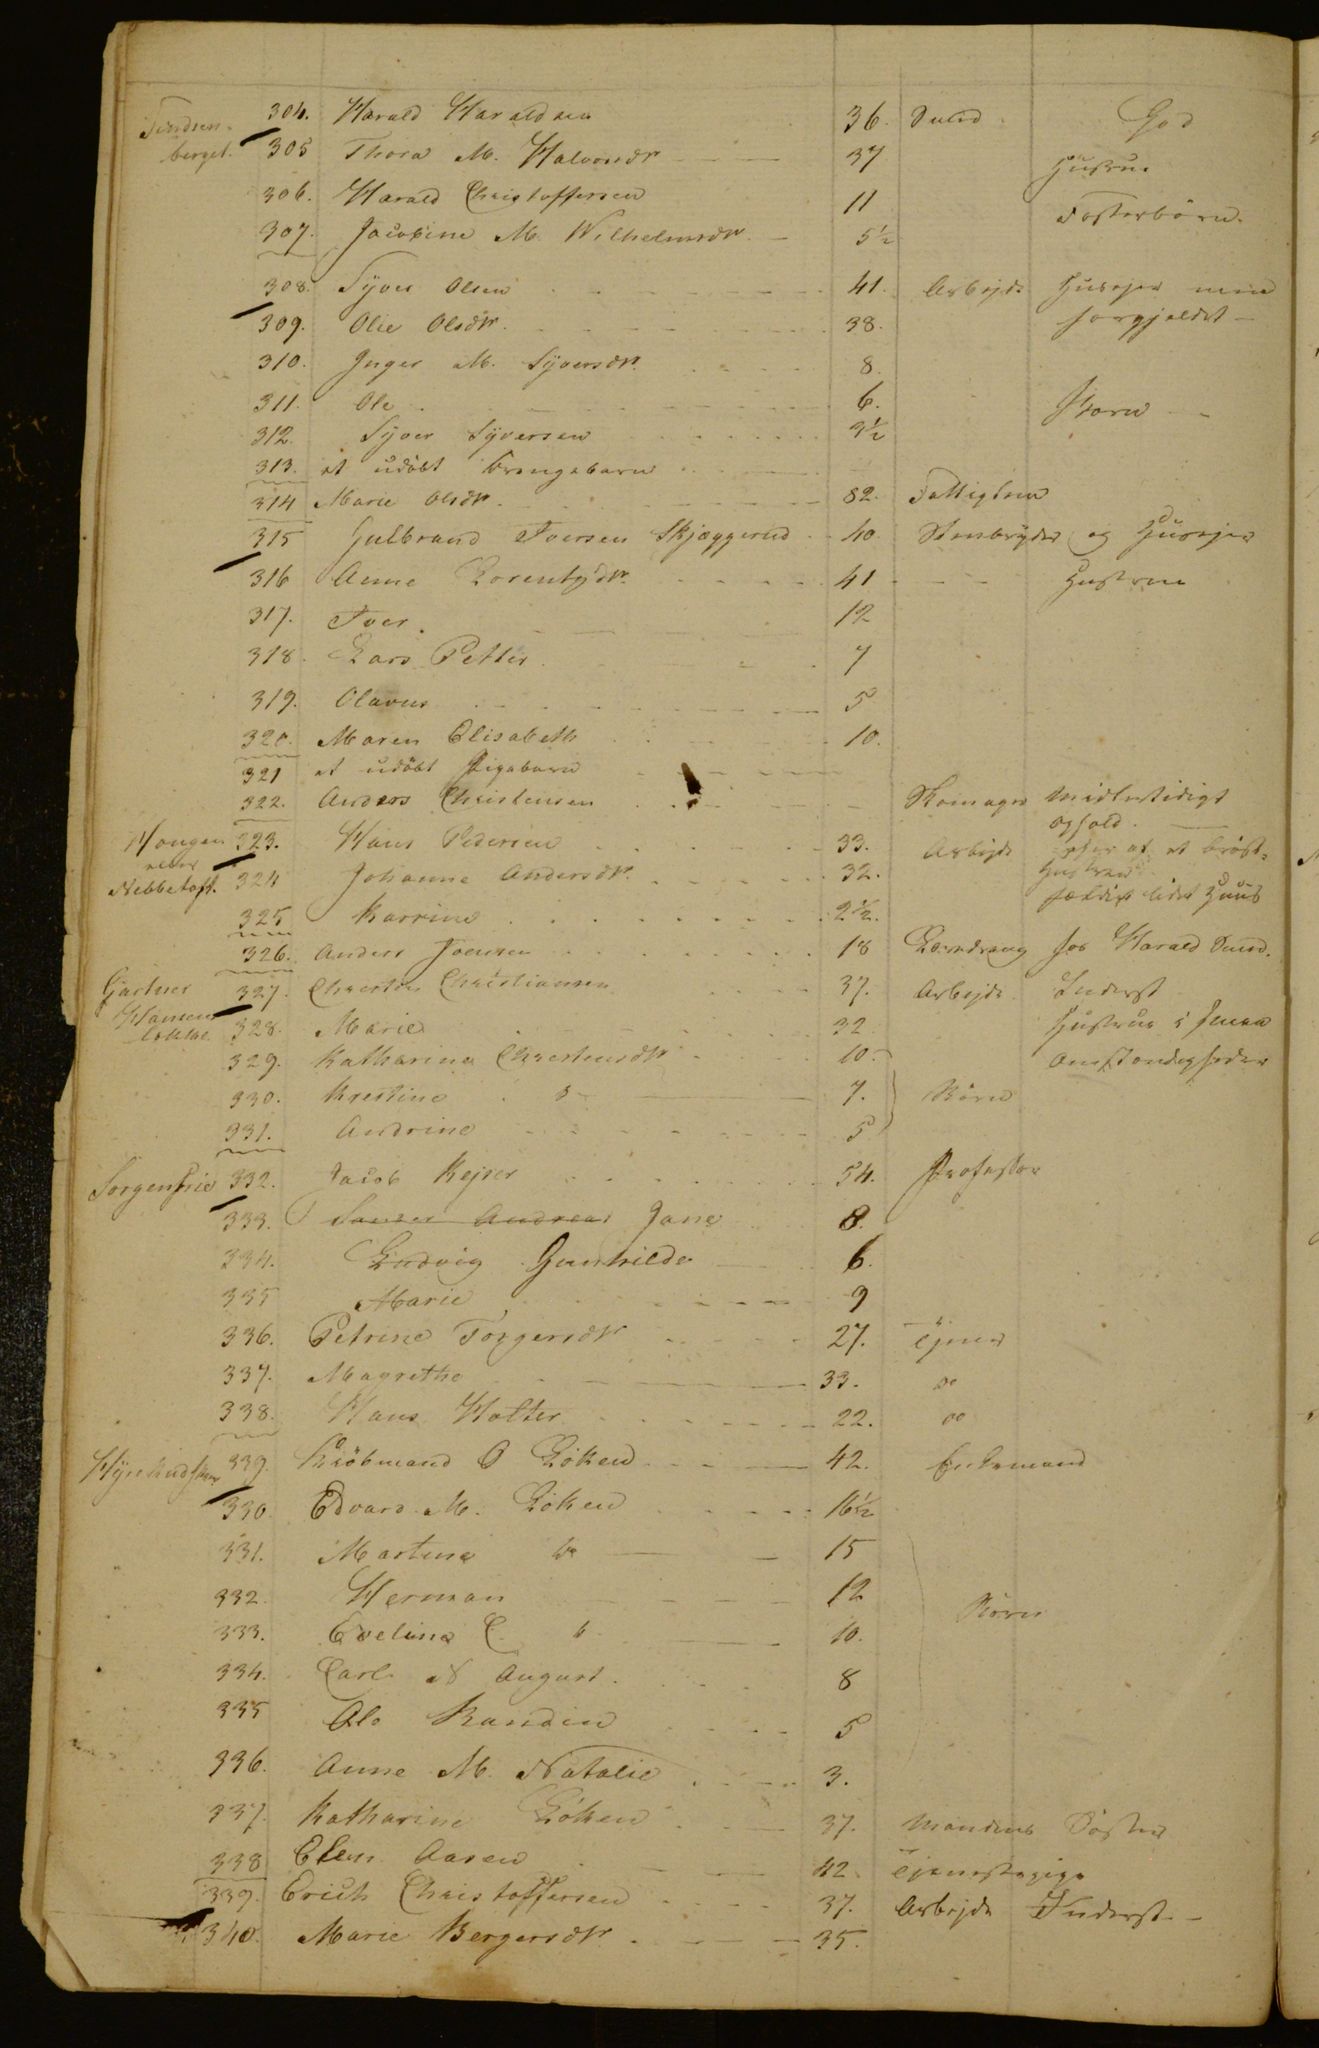 304. Harald Haraldsen 36. Sund. God
berget. 305 Thora M. Halvorsdr 37 Hustrue
306. Harald Christoffersen 11 Fosterbörn.
307. Jacobine M. Wilhelmsdr. 5½
308. Syver Olsen 41. Arbejds Huusejer
309. Olie Olsdr. 38. forgjeldet
310. Inger M. Syversdr. 8.
311. Ole 6. Børn
312. Syver Syversen 3½
313. et udöbt Drengebarn
314 Marie Olsdr. 82. Fattiglem
315 Gulbrand Iversen Skjæggerud 40 Stenbryder og Huusejer
316 Anne Lorentzdr. 41 Hustrue
317. Iver 12
318. Lars Petter 7
319. Olavus 5
320. Maren Elisabeth 10.
321 et udöbt Pigebarn
322. Anders Christensen Skomager midlertidigt
ophold.
Hougen 323. Hans Pedersen 33. Arbejds ejer af et bröst-
eller
Nebbetoft. 324 Johanne Andersdr. 32. Hustrue
fældigt lidet Huus
325 Karrine 2½.
326. Anders Joensen 18 Læredreng hos Harald Sund.
Gartner 327. Christen Christiansen 37. Arbejds Inderst
Hansens
løkke 328. Marie 32 Hustrue i
329. Katharina Christensdr 10. omstændigheder
330. Krestine 7. Börn
331. Andrine 5
Sorgenfrie 332. Jacob Kejser 54. Professor
333. Andreas Jane 8.
334. Ludvig Gunhilde 6.
335 Marie 9
336. Petrine Torgersdr 27. Tjener
337. Magrethe 33. do
338. Hans Holter 22. do
339. Kiöbmand O Löken 42. Enkemand
330. Edvard M. Löken 16½
331. Martine do 15
332. Herman 12 Börn
333. Evelina C. 10.
334. Carl N August. 8
335 Ole Randin 5
336. Anne M. Natalie 3.
337. Katharine Löken 37. Mandens Söster
338 Elen Aasen 42. Tjenestepige
339. Erich Christoffersen 37. Arbejds Inderst.
340. Marie Bergersdr. 35.